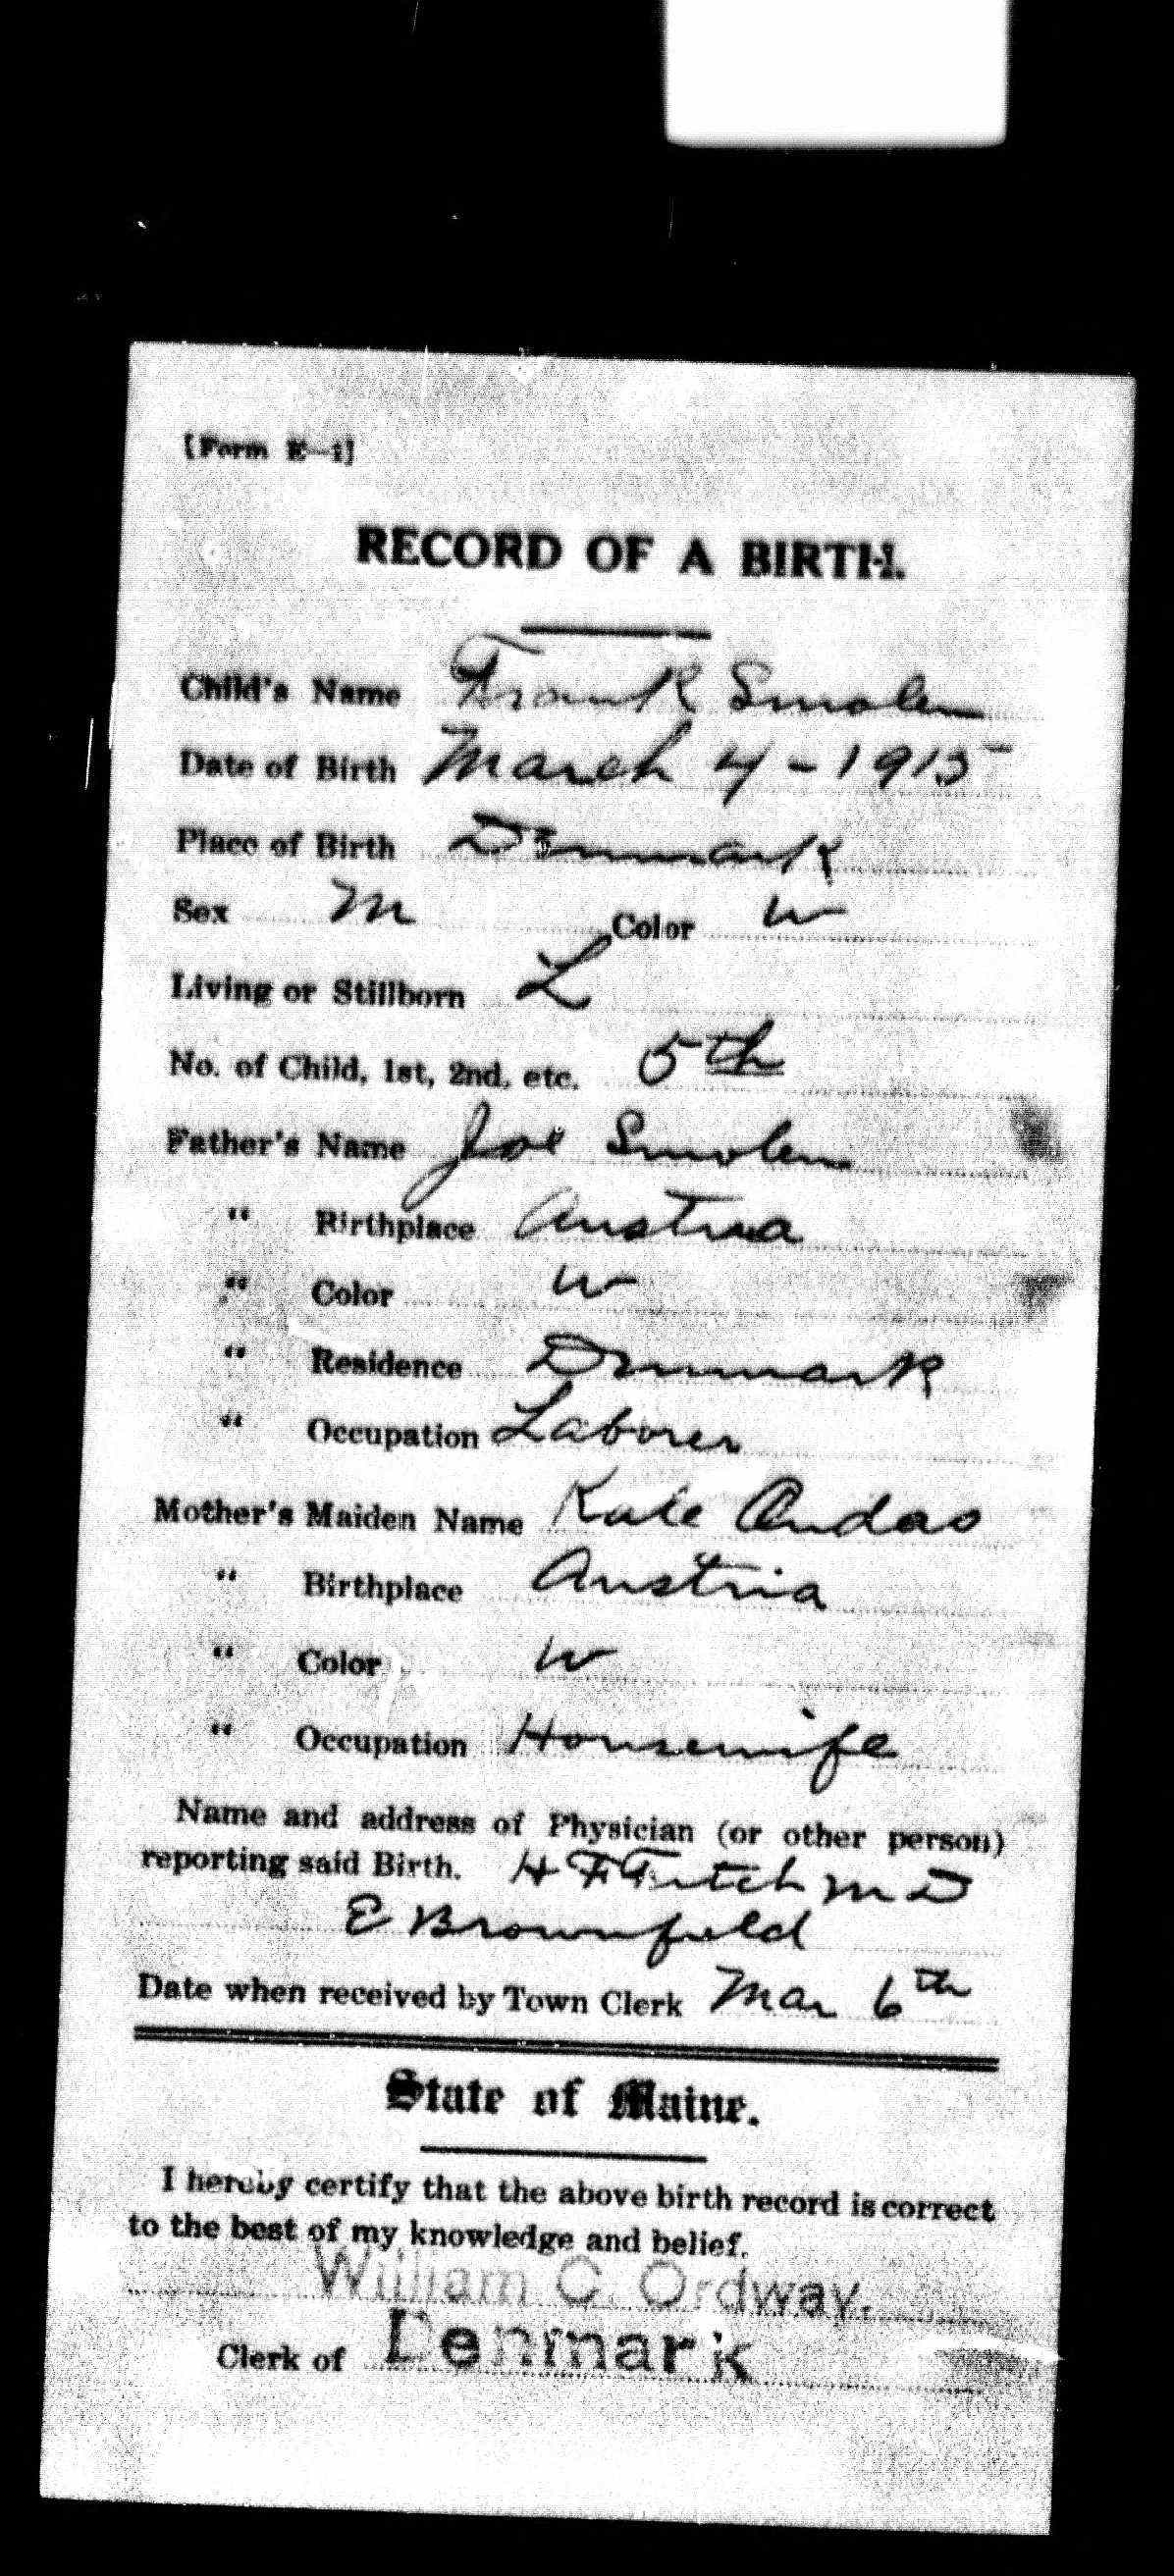 [Form E—1]
RECORD OF A BIRTH.
Child's Name Frank Smolen
Date of Birth March 4 - 1915
Place of Birth Denmark
Sex M Color W
Living or Stillborn L
No. of Child, 1st, 2nd, etc. 5th
Father's Name Joe Smolen
" Birthplace Austria
" Color W
" Residence Denmark
" Occupation Laborer
Mother's Maiden Name Kate
" Birthplace Austria
" Color W
" Occupation Housewife
Name and address of Physician (or other person)
reporting said Birth. H F Fitch M D
E Brownfield
Date when received by Town Clerk Mar 6th
State of Maine.
I hereby certify that the above birth record is correct
to the best of my knowledge and belief.
William C. Ordway.
Clerk of Denmark